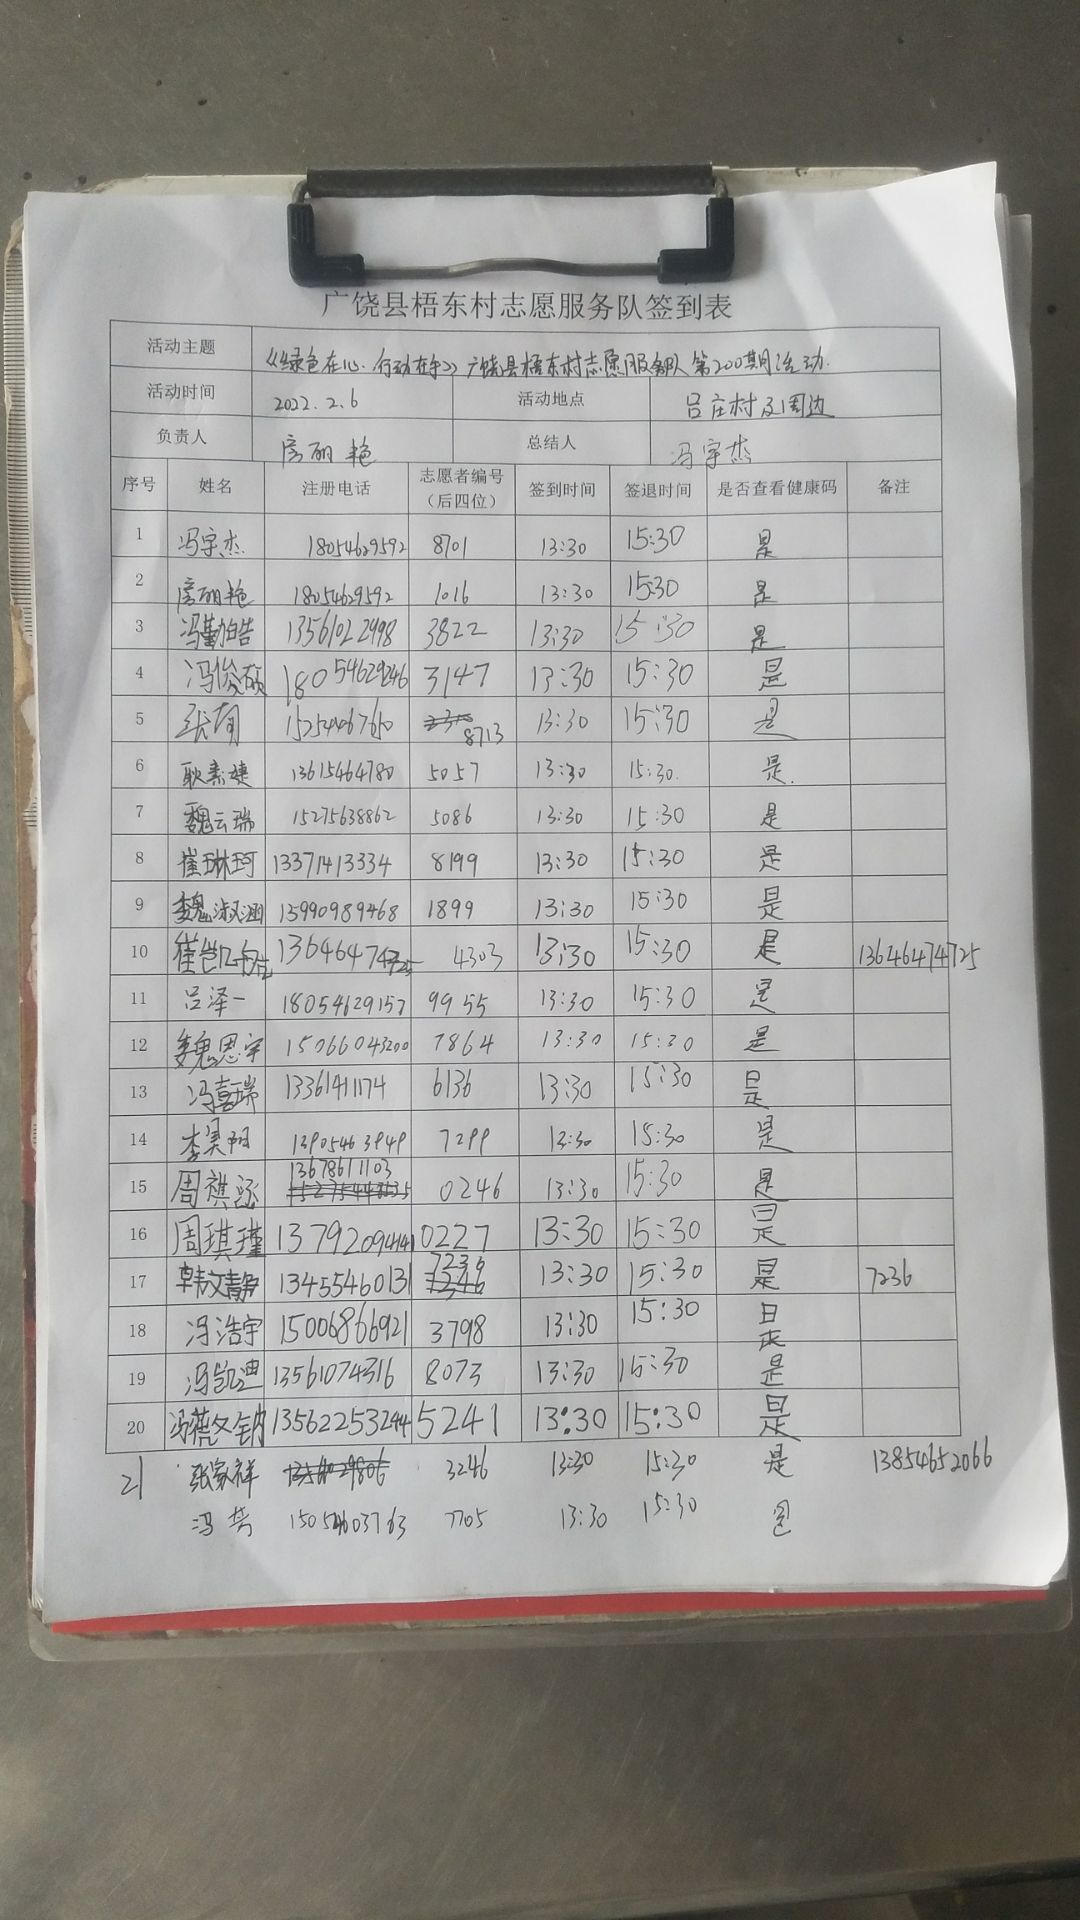 广饶县梧东村志愿服务队签到表
活动主题 《绿色在心·行动在手》广饶县梧东村志愿服务队第200期活动.
活动时间 2022.2.6 活动地点 吕庄村及周边
负责人 房丽艳 总结人 冯宇杰
序号 姓名 注册电话 志愿者编号（后四位） 签到时间 签退时间 是否查看健康码 备注
1 冯宇杰 18054629592 8701 13:30 15:30 是
2 房丽艳 18054629592 1016 13:30 15:30 是
3 冯勤皓 13561022998 3822 13:30 15:30 是
4 冯俊硕 18054629246 3147 13:30 15:30 是
5 8713 13:30 15:30 是
6 耿素婕 13615464780 5057 13:30 15:30. 是.
7 魏云瑞 15275638862 5086 13:30 15:30 是
8 崔琳珂 13371413334 8199 13:30 15:30 是
9 魏淑涵 15990989468 1899 13:30 15:30 是
10 13646474725 4303 13:30 15:30 是 13646474725
11 吕泽一 18054629157 9955 13:30 15:30 是
12 魏恩宇 15066043200 7864 13:30 15:30 是
13 冯嘉瑞 13361411174 6136 13:30 15:30 是
14 李昊阳 13905463949 7299 13:30 15:30 是
15 周祺 13678611103 0246 13:30 15:30 是
16 周琪瑾 13792094141 0227 13:30 15:30 是
17 韩文静 13455460131 7236 13:30 15:30 是 7236
18 冯浩宇 15006866921 3798 13:30 15:30 是
19 冯凯迪 13561074316 8073 13:30 15:30 是
20 13562253244 5241 13:30 15:30 是
21 张家祥 3246 13:30 15:30 是 13854652066
冯 15054603763 7705 13:30 15:30